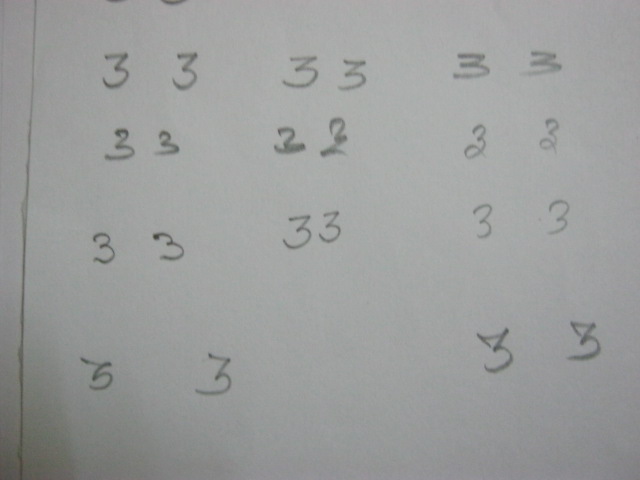 3 3 3 3 3 3
3 3 2 2 2 2
3 3 3 3 3 3
3 3 3 3